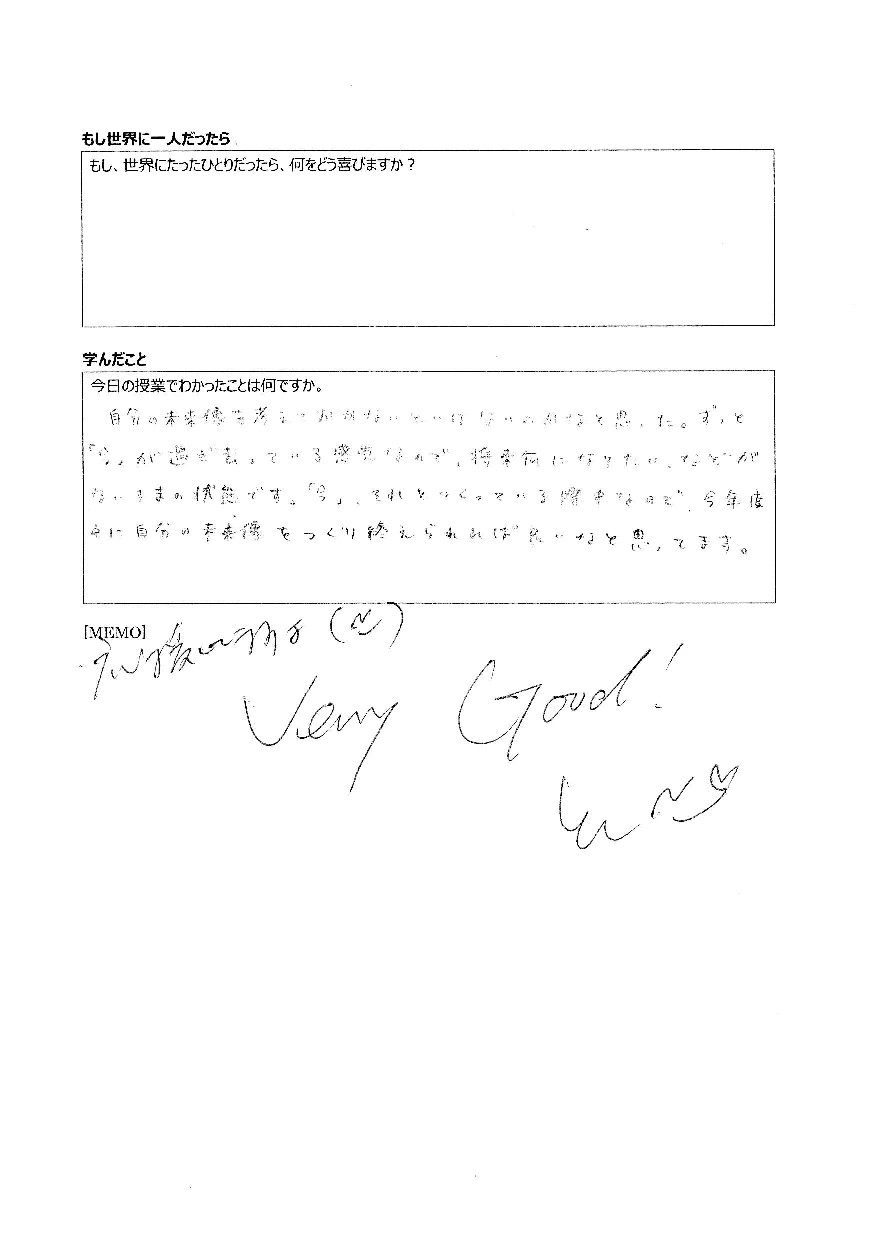 もし世界に一人だったら
もし、世界にたったひとりだったら、何をどう喜びますか？
学んだこと
今日の授業でわかったことは何ですか。
自分の未来像を考えておかないといけないのかなと思った。ずっと
「今」が過ぎ去っている感覚なので、将来何になりたい、などが
ないままの状態です。「今」、それをつくっている途中なので、今年度
中に自分の未来像をつくり終えられれば良いなと思ってます。
[MEMO]
Very Good!